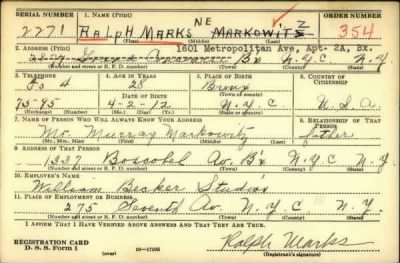 SERIAL NUMBER 1. NAME (Print) ORDER NUMBER
2271 RALPH MARKS NE MARKOWITZ 354
(First) (Middle) (Last)
2. ADDRESS (Print) 1601 Metropolitan Ave, Apt-2A, Bx.
Bx N.Y.C. N.Y.
(Number and street or R. F. D. number) (Town) (County) (State)
3. TELEPHONE 4. AGE IN YEARS 5. PLACE OF BIRTH 6. COUNTRY OF CITIZENSHIP
28 Bronx
DATE OF BIRTH (Town or county)
75-45 4-2-12 N.Y.C. U.S.A.
(Exchange) (Number) (Mo.) (Day) (Yr.) (State or country)
7. NAME OF PERSON WHO WILL ALWAYS KNOW YOUR ADDRESS 8. RELATIONSHIP OF THAT PERSON
Mr. Murray Markowitz father
(Mr., Mrs., Miss) (First) (Middle) (Last)
9. ADDRESS OF THAT PERSON
1337 Boscobel Av. Bx N.Y.C N.Y.
(Number and street or R. F. D. number) (Town) (County) (State)
10. EMPLOYER'S NAME
William Becker Studios
11. PLACE OF EMPLOYMENT OR BUSINESS
275 Seventh Av. N.Y.C N.Y.
(Number and street or R. F. D. number) (Town) (County) (State)
I AFFIRM THAT I HAVE VERIFIED ABOVE ANSWERS AND THAT THEY ARE TRUE.
REGISTRATION CARD
D. S. S. Form 1 (over) 16-17105 Ralph Marks
(Registrant's signature)